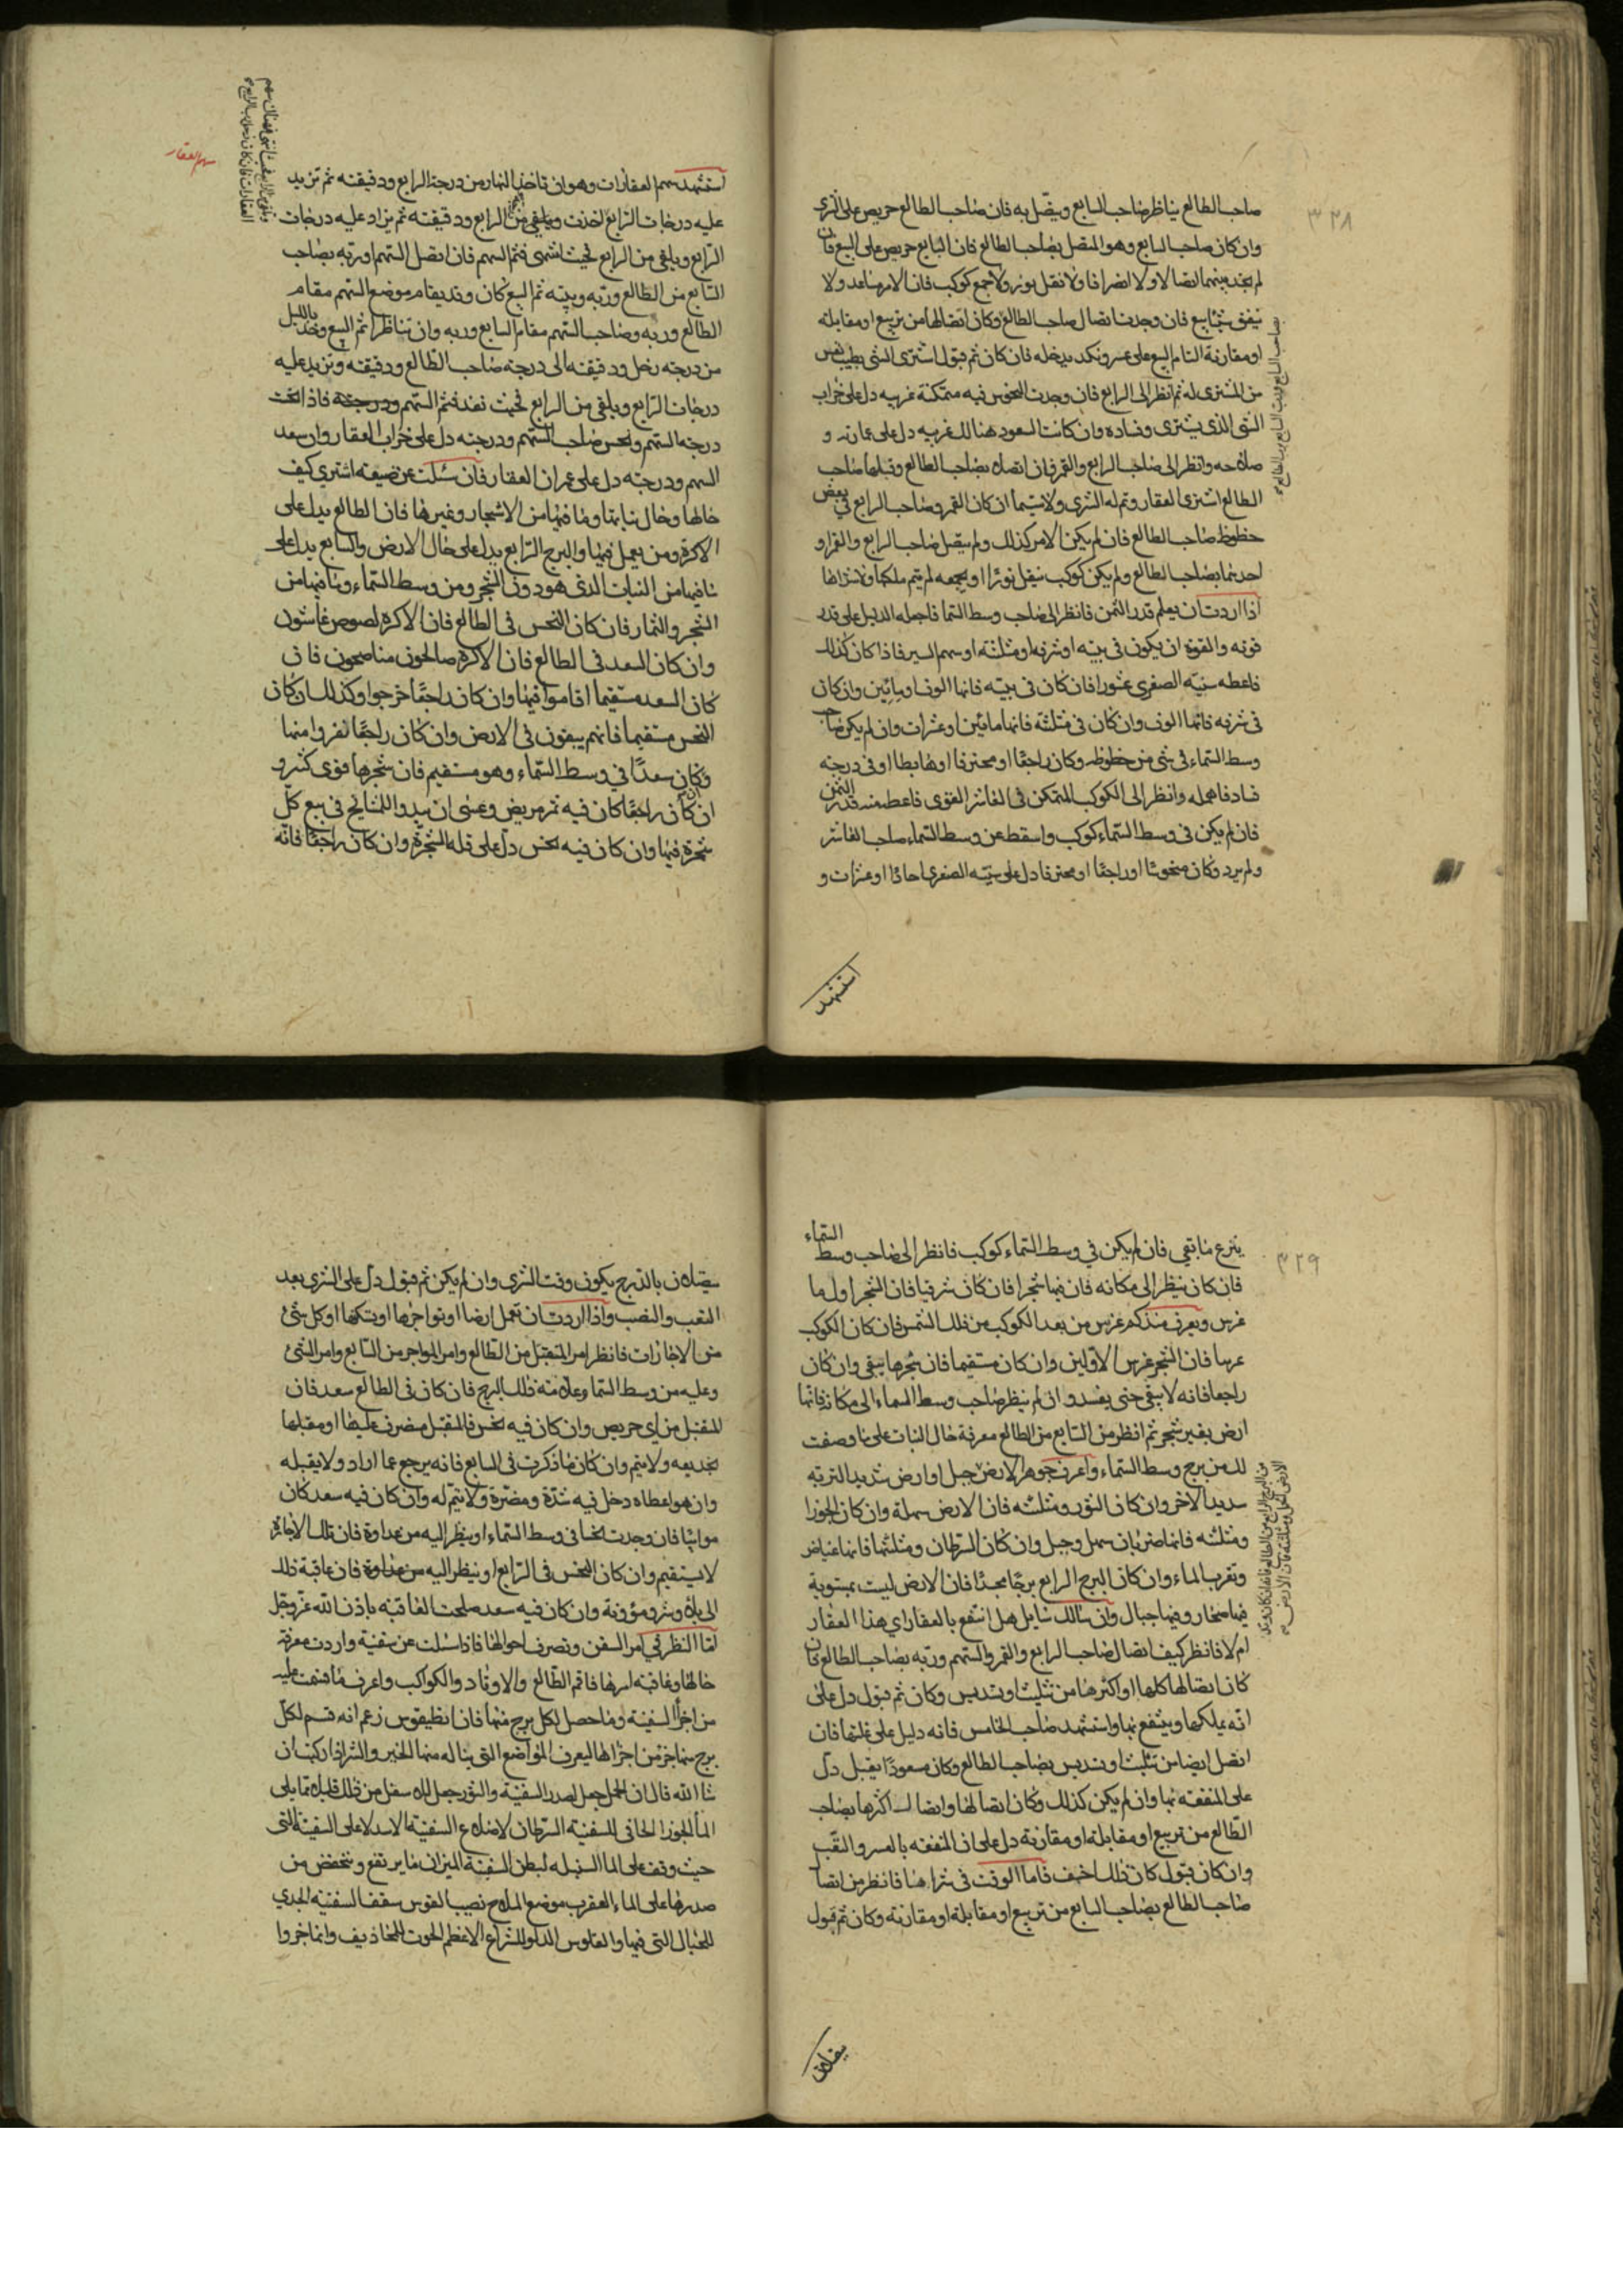 ٣٢٨
صاحب الطالع يناظر صاحب السابع ويتصل به فان صاحب الطالع حريص على الشرى
وان كان صاحب السابع وهو المتصل بصاحب الطالع فان البايع حريص على البيع فان
لم تجد بينهما اتصالا ولا انصرافا ولا نقل نور ولا جمع كوكب فان الامر متباعد ولا
يتفق بتبايع فان وجدت اتصال صاحب الطالع وكان اتصالها من تربيع او مقابلة
او مقارنة التام البيع على عسر ونكد يدخله فان كان ثم قبول اشترى الشى بطيب نفس
من المشترى له ثم انظر الى الرابع فان وجدت النحوس فيه متمكنة غريبه دل على خراب
الشى الذى يشترى وفساده وان كانت السعود هنالك غريبه دل على عمارته و
صلاحه وانظر الى صاحب الرابع والقمر فان اتصلا بصاحب الطالع وقبلها صاحب
الطالع اشترى العقار وتم له الشرى ولا سيما ان كان القمر وصاحب الرابع في بعض
حظوظ صاحب الطالع فان لم يكن الامر كذلك ولم يتصل صاحب الرابع والقمر او
احدهما بصاحب الطالع ولم يكن كوكب ينقل نورا او يجمعه لم يتم ملكها ولا شراها
اذا اردت ان يعلم قدر الثمن فانظر الى صاحب وسط السما فاجعله الدليل على قدر
قوته والقوة ان يكون فى بيته او شرفه او مثلثته او سهم السير فاذا كان كذلك
فاعطه سنيه الصغرى عشورا فان كان فى بيته فانها الوف او مايتين وان كان
فى شرفه فانها الوف وان كان فى مثلثته فانها مائين او عشرات وان لم يكن صاحب
وسط السماء فى شى من حظوظه وكان راجعا او محترقا او هابطا او فى درجته
فساد فاهمله وانظر الى الكوكب المتمكن فى العاشر القوى فاعط منه قدر الثمن
فان لم يكن فى وسط السماء كوكب واسقط عن وسط السماء صاحب العاشر
ولم يرد وكان منحوسا او راجعا او محترقا دل على سنيه الصغرى احادا او عشرات و
استشهد
سهم العقار
استشهد سهم العقارات وهو ان تاخذ بالنهار من درجة الرابع ودقيقته ثم تزيد
عليه درجات الرابع اخذت ويلقى من الرابع ودقيقته ثم يزاد عليه درجات
الرابع ويلقى من الرابع فحيث انتهى فثم السهم فان اتصل السهم او ربه بصاحب
السابع من الطالع وربه وبيته ثم البيع كان وقد يقام موضع السهم مقام
الطالع وربه وصاحب السهم مقام السابع وربه وان تناظرا ثم البيع وخذ بالليل
من درجه زحل ودقيقته الى درجته صاحب الطالع ودقيقته وتزيد عليه
درجات الرابع ويلقى من الرابع فحيث نفد فثم السهم ودرجته فاذا انحست
درجة السهم ولنحس صاحب السهم ودرجته دل على خراب العقار وان سعد
السهم ودرجته دل على عمران العقار فان سئلت عن ضيعه اشترى كيف
حالها وحال نباتها وما فيها من الاشجار وغيرها فان الطالع يدل على
الاكرة ومن يعمل فيها والبرج الرابع يدل على حال الارض والسابع يدل على
ما فيها من النبات الذى هو دون الشجر ومن وسط السماء وما فيها من
الشجر والثمار فان كان النحس فى الطالع فان الاكرة لصوص غاشون
وان كان السعد فى الطالع فان الاكرة صالحون مناصحون فان
كان السعد مستقيما اقاموا فيها وان كان راجعا خرجوا وكذلك ان كان
النحس مستقيما فانهم يبقون فى الارض وان كان راجعا نفروا منها
وكان سعدا في وسط السماء وهو مستقيم فان شجرها قوى كثير و
ان كان راجعا كان فيه ثمر مريض وعسى ان يبدوا المشايخ فى بيع كل
شجرة فيها وان كان فيه نحس دل على قلة الشجرة وان كان راجعا فانه
٣٢٩
ينزع ما بقى فان لم يكن في وسط السماء كوكب فانظر الى صاحب وسط السماء
فان كان ينظر الى مكانه فان فيها شجرا فان كان شرقيا فان الشجر اول ما
غرس ويعرف منذ كم غرس من بعد الكوكب من ذلك الشمس فان كان الكوكب
غربيا فان الشجر غرس الاولين وان كان مستقيما فان شجرها يبقى وان كان
راجعا فانه لا يبقى حتى يفسد وان لم ينظر صاحب وسط السماء الى مكانه فانها
ارض بغير شجر ثم انظر من السابع من الطالع معرفة حال النبات على ما وصفت
لك من برج وسط السماء واعرف جوهر الارض جبل او ارض شديد التربة
سديد الاخر وان كان الثور ومثلثته فان الارض سهلة وان كان الجوزا
ومثلثته فانها ضربان سهل وجبل وان كان السرطان ومثلثها فانها غياض
وتقرب الماء وان كان البرج الرابع برجا مجسدا فان الارض ليست بمستوية
فيها صخار وفيها جبال وان سالك سايل هل انتفع بالعقار اي هذا العقار
ام لا فانظر كيف اتصال صاحب الرابع والقمر والسهم وربه بصاحب الطالع فان
كان اتصالها كلها او اكثرها من تثليث او تسديس وكان ثم قبول دل على
انه يملكها وينتفع بها واستشهد صاحب الخامس فانه دليل على غلتها فان
اتصل ايضا من تثليث او تسديس بصاحب الطالع وكان مسعودا يقبل دل
على المنفعة بها وان لم يكن كذلك وكان اتصالها واتصال اكثرها بصاحب
الطالع من تربيع او مقابلة او مقارنة دل على ان المنفعه بالعسر والتعب
وان كان قبول كان ذلك اخف فاما الوقت فى شراها فانظر من اتصال
صاحب الطالع بصاحب السابع من تربيع او مقابلة او مقارنته وكان ثم قبول
يتصلان
يتصلان بالدرج يكون وقت الشرى وان لم يكن ثم قبول دل على الشرى بعد
التعب والنصب واذا اردت ان تعمل ارضا او تواجرها او تكتها او كل شئ
من الاجازات فانظر امر المتقبل من الطالع وامر المواجر من السابع وامر الشئ
وعليه من وسط السما وعلامته ذلك البرج فان كان فى الطالع سعد فان
المتقبل من اي حريص وان كان فيه نحس فالمتقبل منصرف عليها او مقبلها
بخديعه ولا يتم وان كان ما ذكرت فى السابع فانه يرجع عما اراد ولا يقبله
وان هو اعطاه دخل فيه شدة ومضرة ولا يتم له وان كان فيه سعد كان
مواتيا فان وجدت نحسا فى وسط السماء او ينظر اليه من عداوة فان تلك الاجارة
لا يستقيم وان كان النحس فى الرابع او ينظر اليه من عداوة فان عاقبة ذلك
الى بلاء وشر ومؤونة وان كان فيه سعد صلحت العاقبة باذن الله عز وجل
اما النظر في امر السفن وتصرف احوالها فاذا سئلت عن سفينة واردت معرفة
حالها وعاقبة امرها فاقم الطالع والاوتاد والكواكب واعرف ما قسمت عليه
من اجزأ السفينة وما حصل لكل برج منها فان انطيقوس زعم انه قسم لكل
برج منها جزء من اجزائها ليعرف المواضع التى يناله منها الخير والشر اذا ركبت ان
شا الله قال ان الحمل جعل لصدر السفينة والثور جعل له سفل من ذلك قليلا مما يلى
الماء الجوزا لحافى للسفينة السرطان لاضلاع السفينة الاسد لاعلى السفينة التى
حيث وقف على الماء السنبله لبطن السفينة الميزان ما يرتفع وينخفض من
صدرها على الماء العقرب موضع الملاح نصيب القوس سقف السفينة الجدي
للحبال التى فيها والقلوس الدلو للشراع الاعظم الحوت للمخاذيف وانما خروا